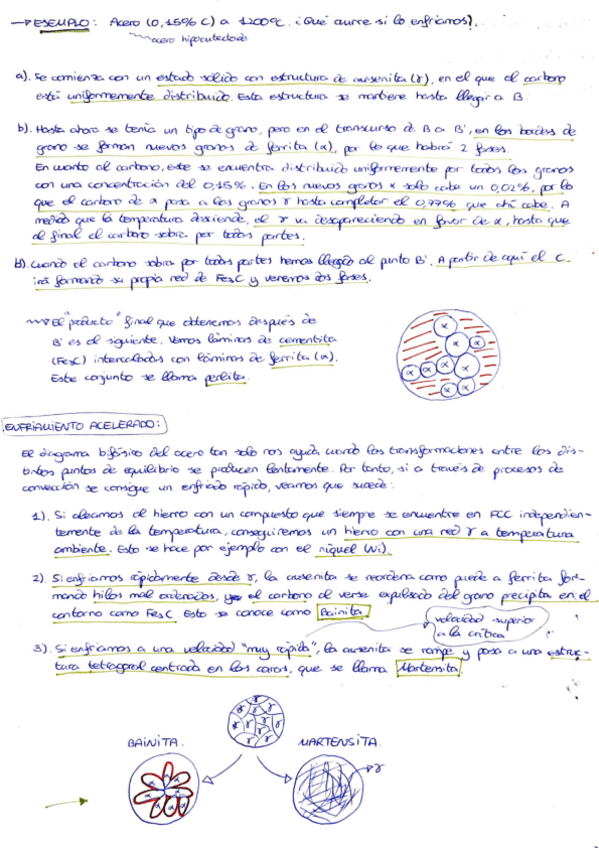 → EJEMPLO: Acero (0,15% C) a 1200ºC. ¿Qué ocurre si lo enfriamos?
acero hipoeutectoide
a). Se comienza con un estado sólido con estructura de austenita (γ), en el que el carbono
está uniformemente distribuido. Esta estructura se mantiene hasta llegar a B.
b). Hasta ahora se tenía un tipo de grano, pero en el transcurso de B a B', en los bordes de
grano se forman nuevos granos de ferrita (α), por lo que habrá 2 fases.
En cuanto al carbono, este se encuentra distribuido uniformemente por todos los granos
con una concentración del 0,15%. En los nuevos granos α solo cabe un 0,02%, por lo
que el carbono de α pasa a los granos γ hasta completar el 0,77% que ahí cabe. A
medida que la temperatura desciende, el γ va desapareciendo en favor de α, hasta que
al final el carbono sobra por todas partes.
b). Cuando el carbono sobra por todas partes hemos llegado al punto B'. A partir de aquí el C
irá formando su propia red de Fe3C y veremos dos fases.
El "producto" final que obtenemos después de
B' es el siguiente. Vemos láminas de cementita
(Fe3C) intercaladas con láminas de ferrita (α).
Este conjunto se llama perlita.
α α α α α α α α α
ENFRIAMIENTO ACELERADO:
El diagrama bifásico del acero tan solo nos ayuda cuando las transformaciones entre los dis-
tintos puntos de equilibrio se producen lentamente. Por tanto, si a través de procesos de
convección se consigue un enfriado rápido, veamos que sucede:
1). Si aleamos el hierro con un compuesto que siempre se encuentre en FCC independien-
temente de la temperatura, conseguiremos un hierro con una red γ a temperatura
ambiente. Esto se hace por ejemplo con el níquel (Ni).
2). Si enfriamos rápidamente desde γ, la austenita se reordena como puede a ferrita for-
mando hilos mal ordenados, y el carbono al verse expulsado del grano precipita en el
contorno como Fe3C. Esto se conoce como Bainita.
velocidad superior
a la crítica
3). Si enfriamos a una velocidad "muy rápida", la austenita se rompe y pasa a una estruc-
tura tetragonal centrada en las caras, que se llama Martensita.
γ γ γ γ γ γ γ
BAINITA. MARTENSITA.
γ
α α α α α α